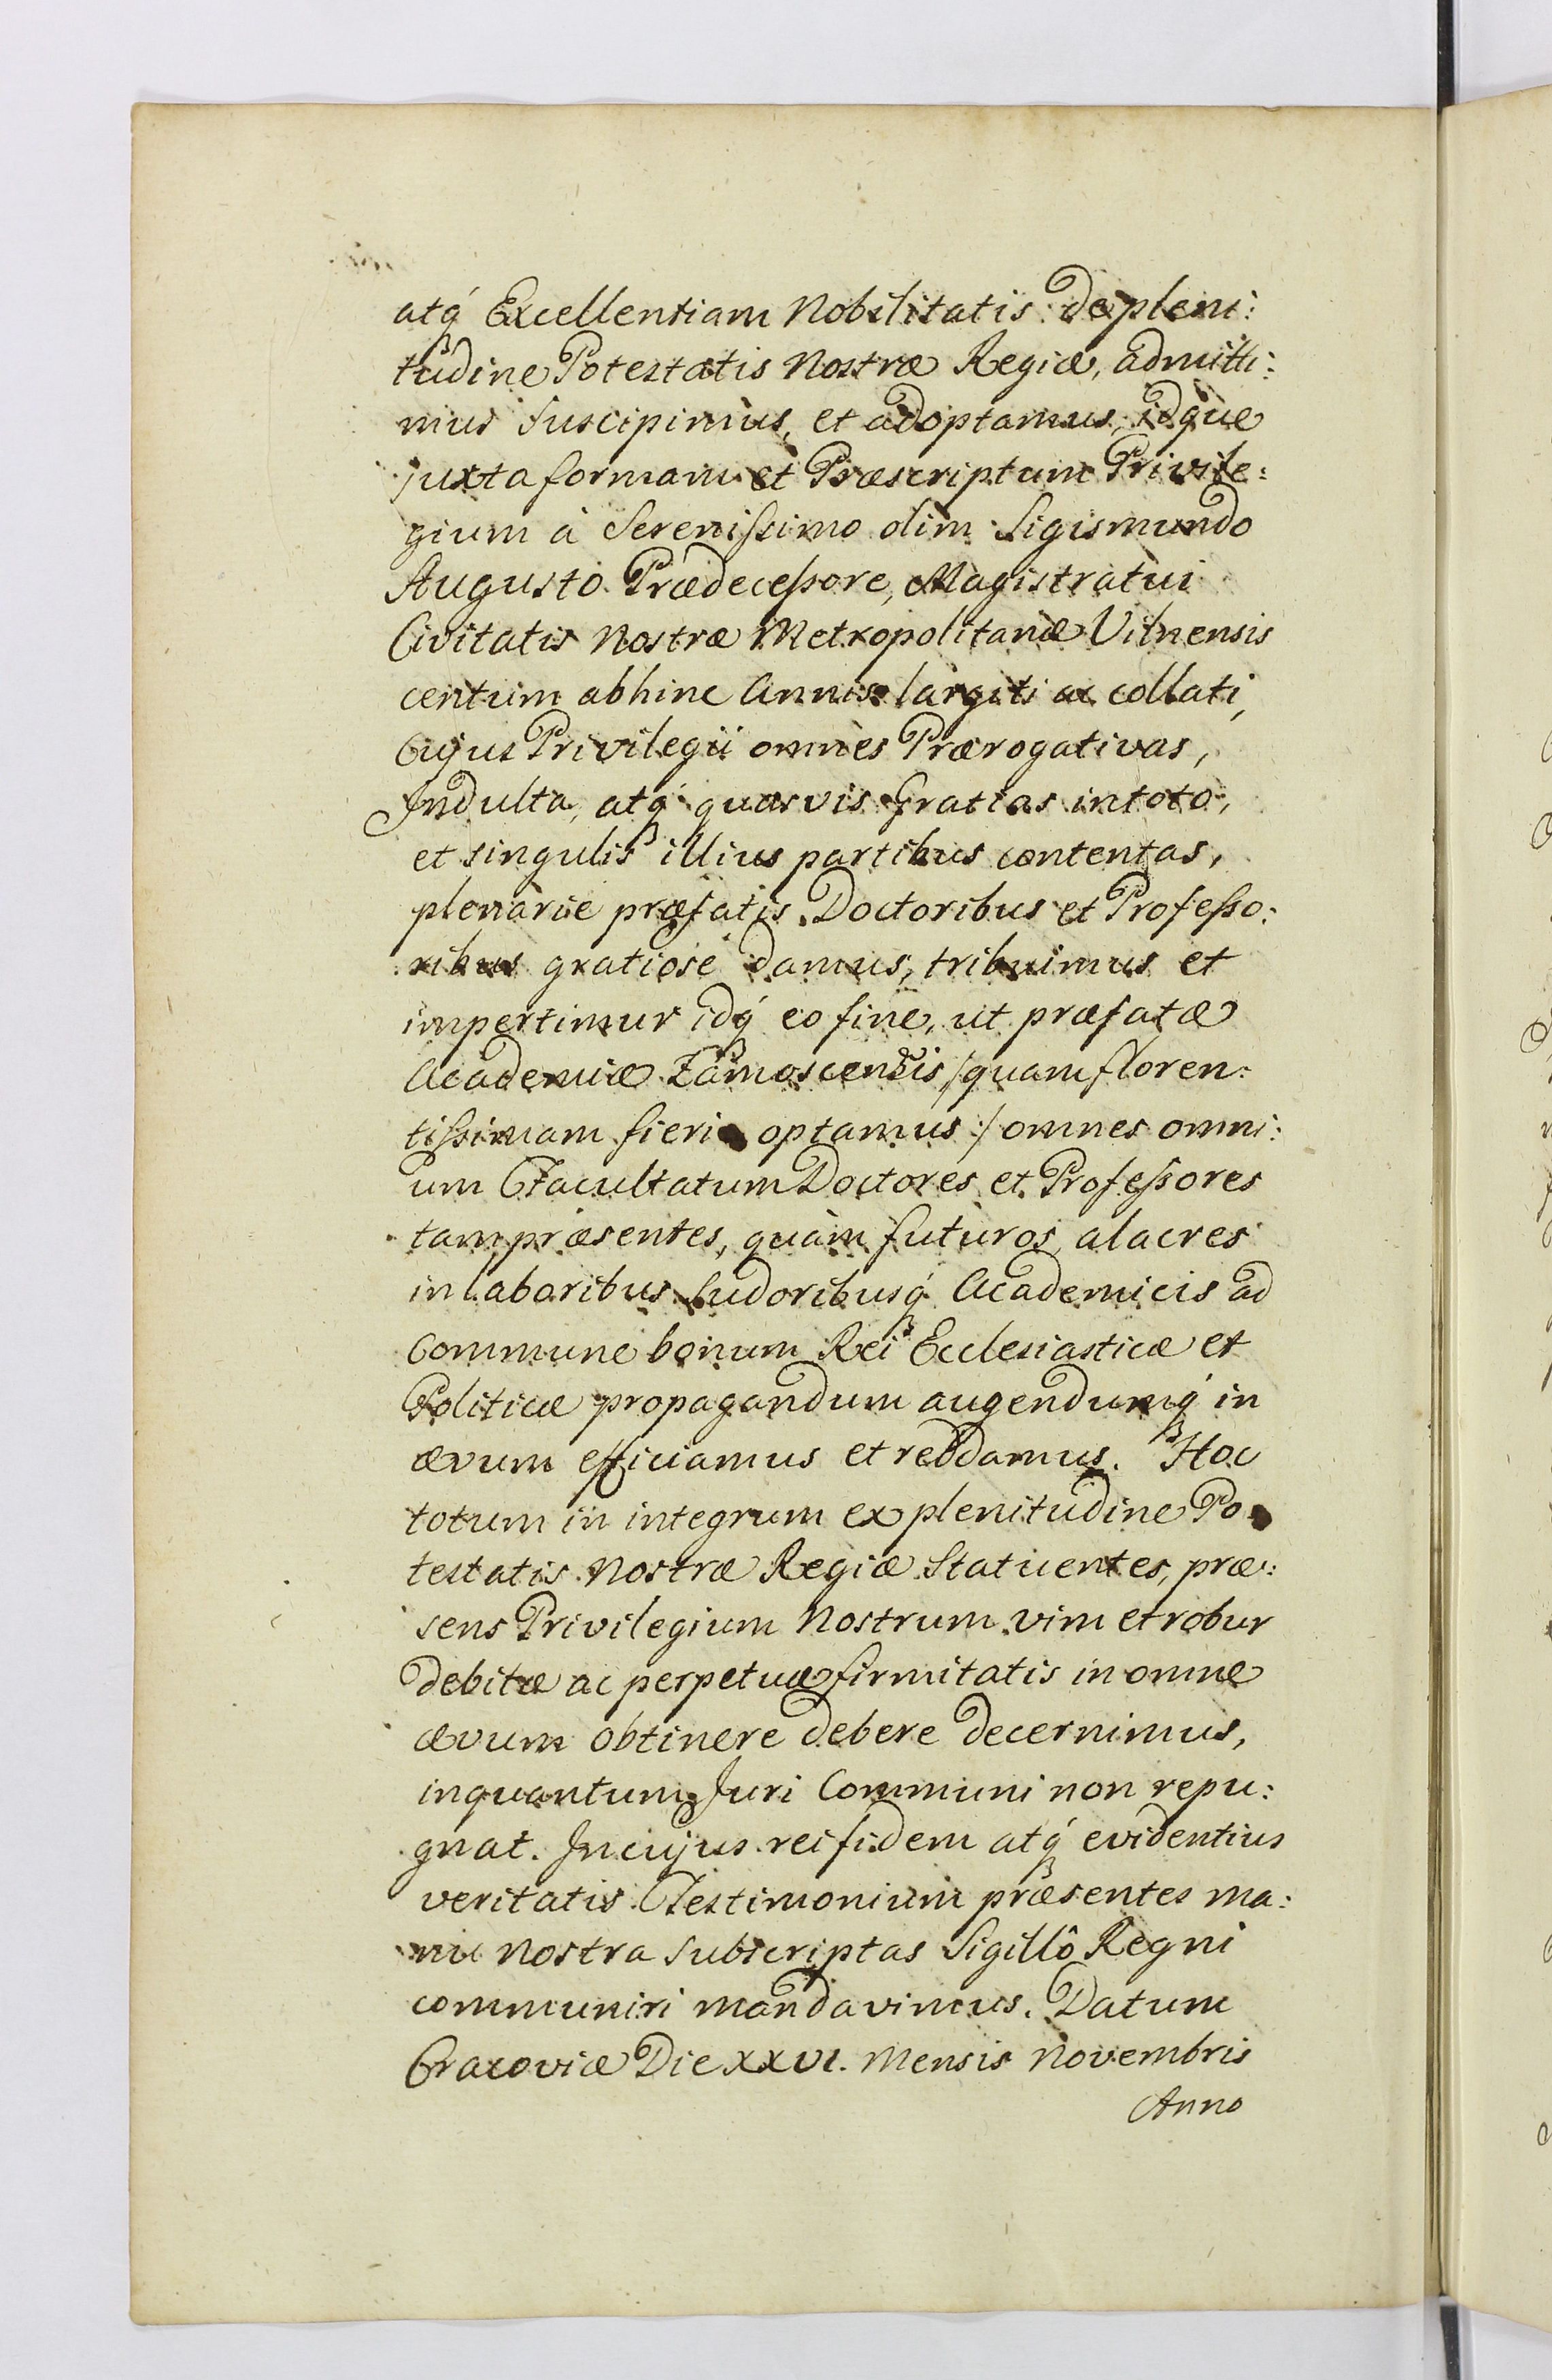 atq́ Excellentiam Nobilitatis de pleni:
tudine Potestatis Nostræ Regiæ, admitti:
mus suscipimus, et adoptamus, idque
juxta formam et Præscriptum Privile:
gium à Serenissimo olim Sigismundo
Augusto Prædecessore, Magistratui
Civitatis Nostræ Metropolitanæ Vilnensis
centum abhinc Annis largiti ac collati,
Cujus Privilegii omnes Prærogativas,
Indulta, atq́ quasvis Gratias in toto,
et singulis illius partibus contentas,
plenarie præfatis Doctoribus et Professo:
ribus gratiose damus, tribuimus et
impertimur idq́ eo fine, ut præfatæ
Academiæ Zamoscensis /quam floren:
tissimam fieri optamus:/ omnes omni:
um Facultatum Doctores et Professores
tam præsentes, quàm futuros, alacres
in laboribus sudoribusq́ Academicis ad
Commune bonum Rei Ecclesiasticæ et
Politicæ propagandum augendumq́ in
ævum efficiamus et reddamus. Hoc
totum in integrum ex plenitudine Po
testatis Nostræ Regiæ Statuentes, præ:
sens Privilegium Nostrum vim et robur
debitæ ac perpetuæ firmitatis in omne
ævum obtinere debere decernimus,
inquantum Juri Communi non repu:
gnat. In cujus rei fidem atq́ evidentius
veritatis Testimonium præsentes ma:
nu Nostra subscriptas Sigillô Regni
communiri mandavimus. Datum
Cracoviæ Die XXVI. Mensis Novembris
Anno